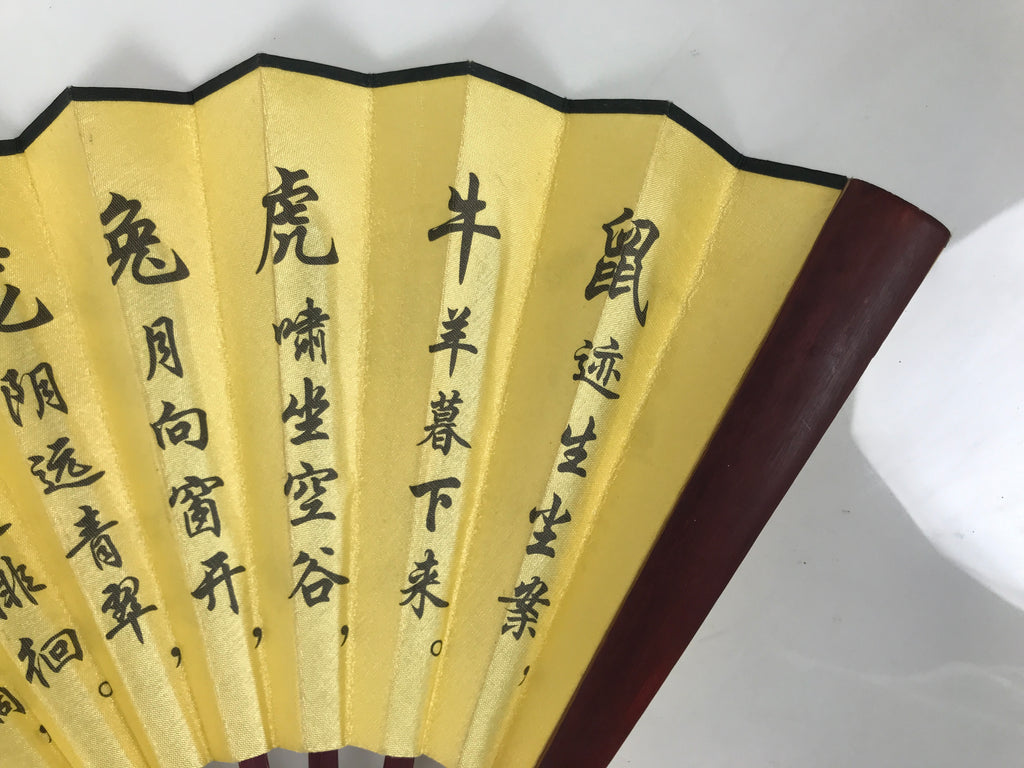 鼠迹生尘案，
牛羊暮下来。
虎啸坐空谷，
兔月向窗开，
阴远青翠，
徊。